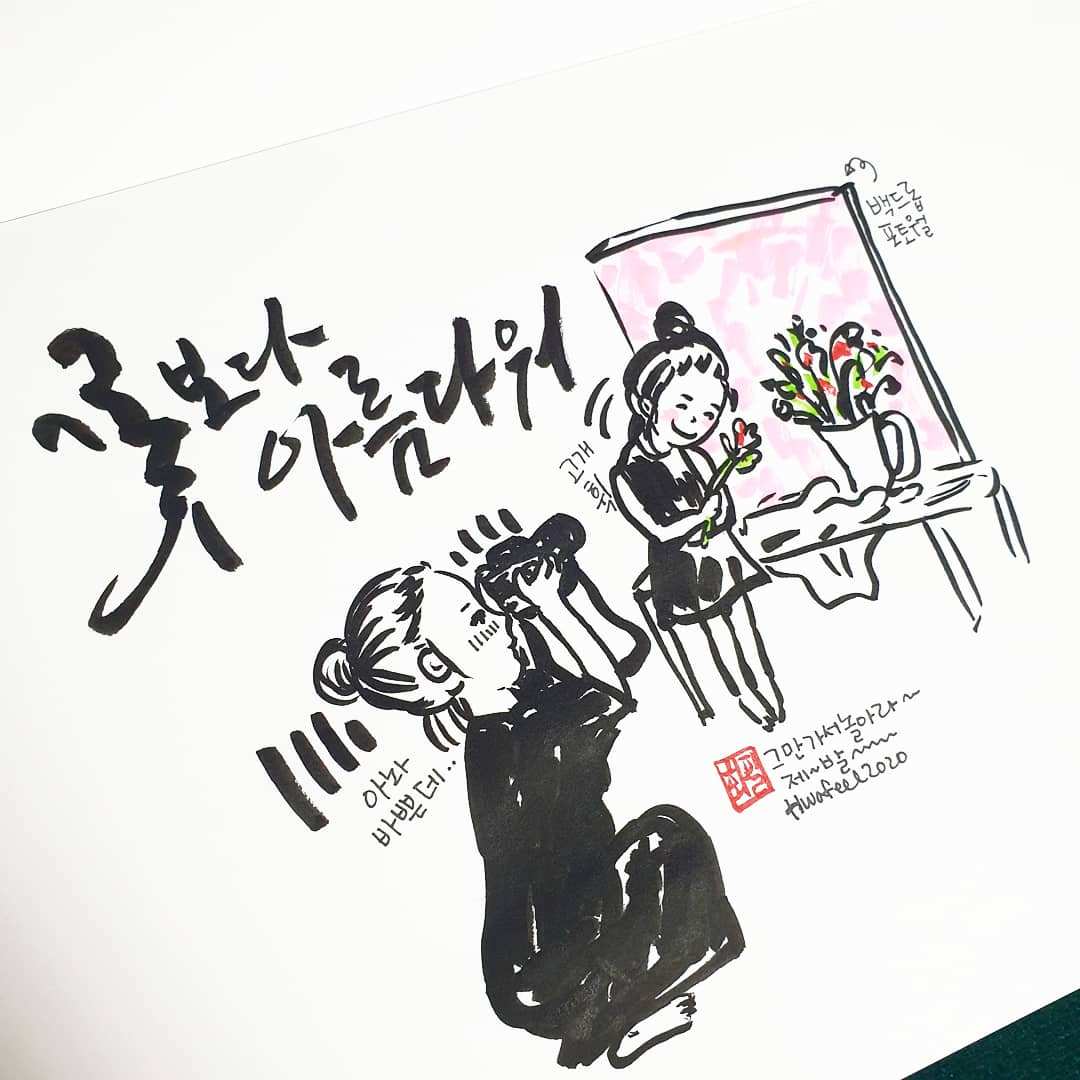 꽃보다
아름다워
백드롭
포토월
고개
아놔
바쁜데...
그만가서놀아라~
제~발~~~
Hwafeel2020